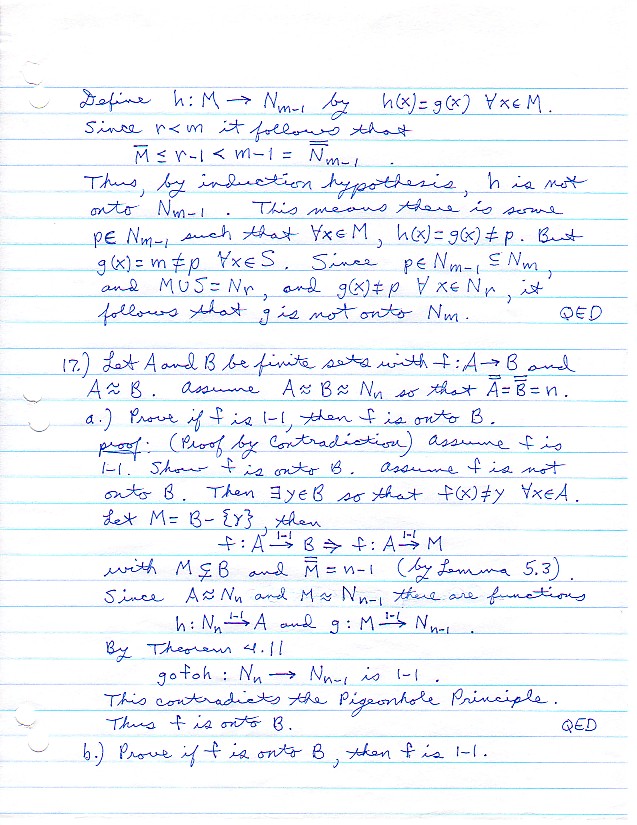 Define h: M → Nm-1 by h(x)=g(x) ∀x∈M.
Since r<m it follows that
M̿ ≤ r-1 < m-1 = N̿m-1 .
Thus, by induction hypothesis, h is not
onto Nm-1 . This means there is some
p∈ Nm-1 such that ∀x∈M, h(x)=g(x)≠p. But
g(x)=m≠p ∀x∈S. Since p∈Nm-1 ⊆ Nm,
and M∪S=Nr, and g(x)≠p ∀x∈Nr, it
follows that g is not onto Nm. QED
17.) Let A and B be finite sets with f: A→B and
A≈B. Assume A≈B≈Nn so that A̿=B̿=n.
a.) Prove if f is 1-1, then f is onto B.
proof: (Proof by Contradiction) Assume f is
1-1. Show f is onto B. Assume f is not
onto B. Then ∃y∈B so that f(x)≠y ∀x∈A.
Let M= B-{y}, then
f: A 1-1→ B ⇒ f: A 1-1→ M
with M⊊B and M̿=n-1 (by Lemma 5.3).
Since A≈Nn and M≈Nn-1 there are functions
h: Nn 1-1→ A and g: M 1-1→ Nn-1 .
By Theorem 4.11
gofoh : Nn → Nn-1 is 1-1 .
This contradicts the Pigeonhole Principle.
Thus f is onto B. QED
b.) Prove if f is onto B, then f is 1-1.